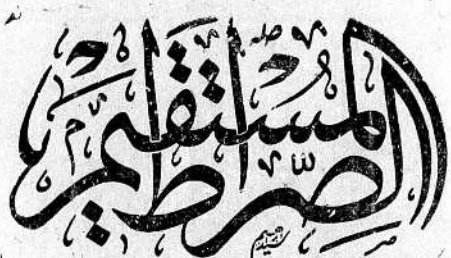 الصِّرٰط المُسْتَقِيم